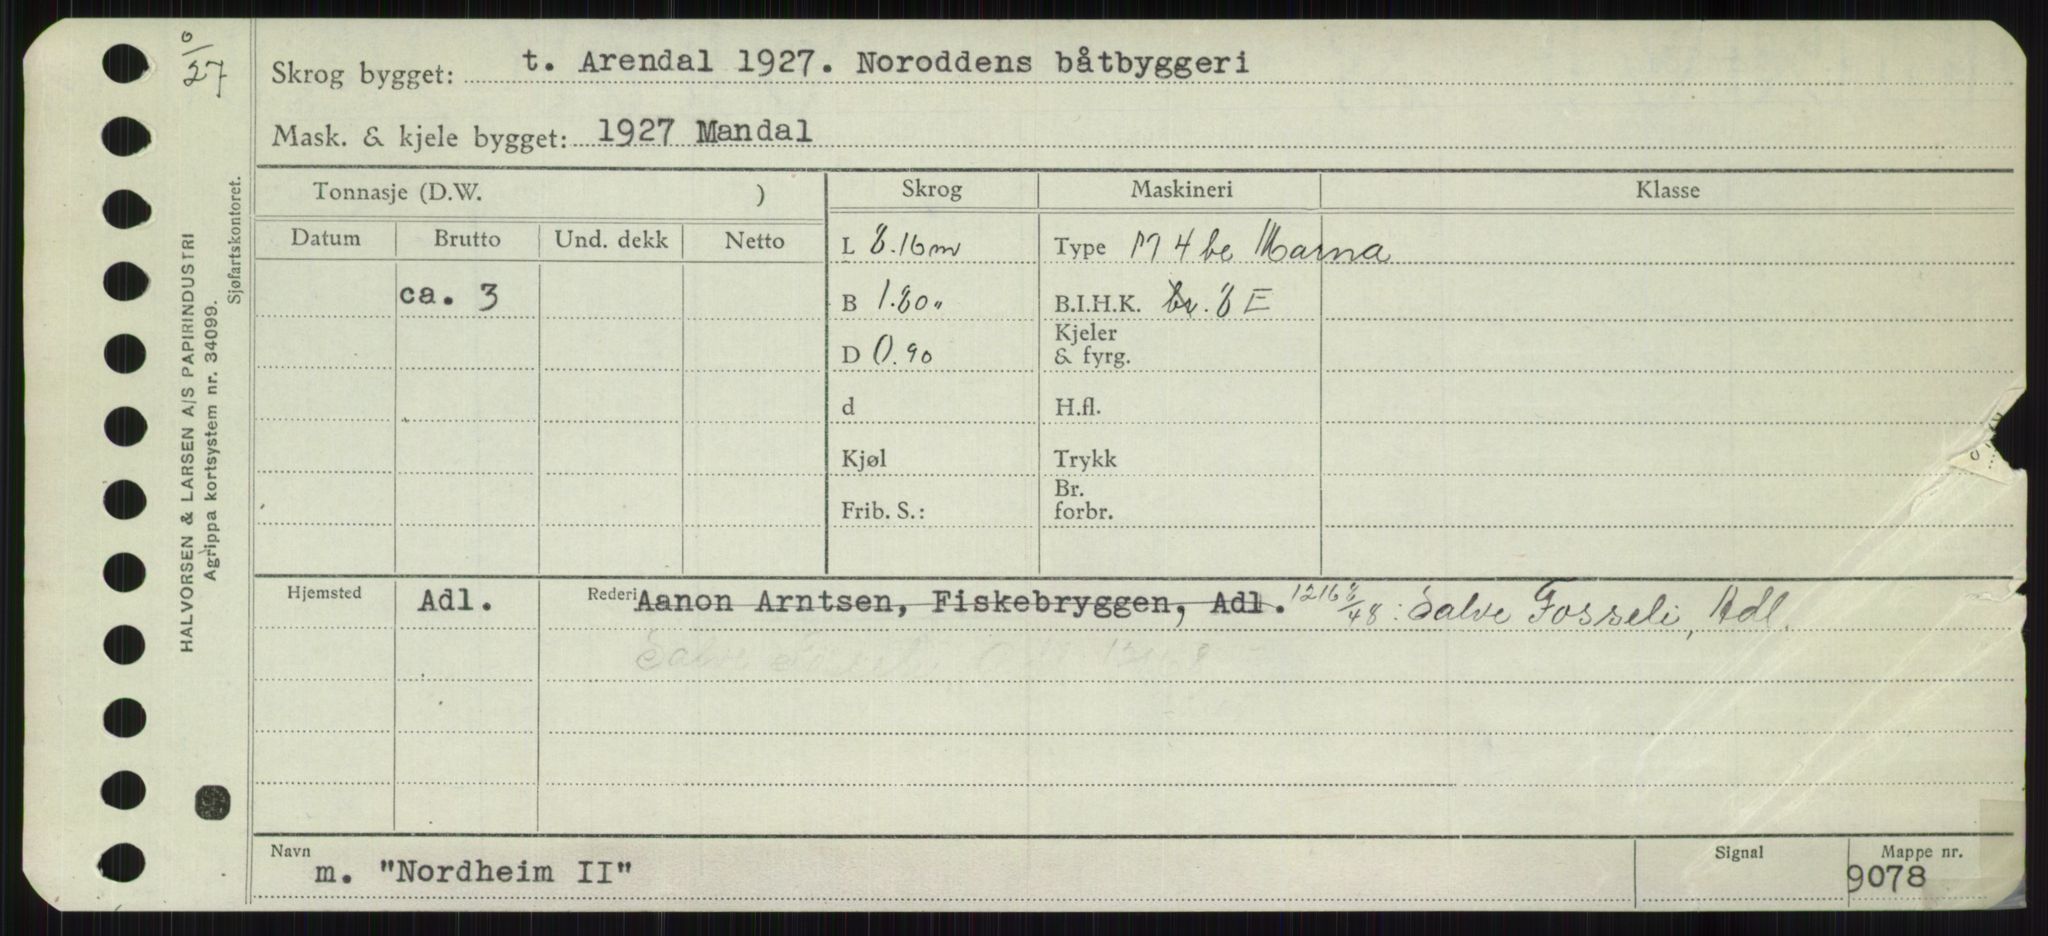 6/27
Skrog bygget: t. Arendal 1927. Noroddens båtbyggeri
Mask. & kjele bygget: 1927 Mandal
HALVORSEN & LARSEN A/S PAPIRINDUSTRI
Agrippa kortsystem nr. 34099.
Sjøfartskontoret.
Tonnasje (D.W. )
Skrog
Maskineri
Klasse
Datum
Brutto
Und. dekk
Netto
ca. 3
L 8.16 m
B 1.80 "
D 0.90
d
Kjøl
Frib. S.:
Type M 4 be Marna
B.I.H.K. br. 8 E
Kjeler
& fyrg.
H.fl.
Trykk
Br.
forbr.
Hjemsted
Adl.
Rederi Aanon Arntsen, Fiskebryggen, Adl. 1216 8/48: Salve Fosseli, Adl.
Salve
Navn
m. "Nordheim II"
Signal
Mappe nr.
9078